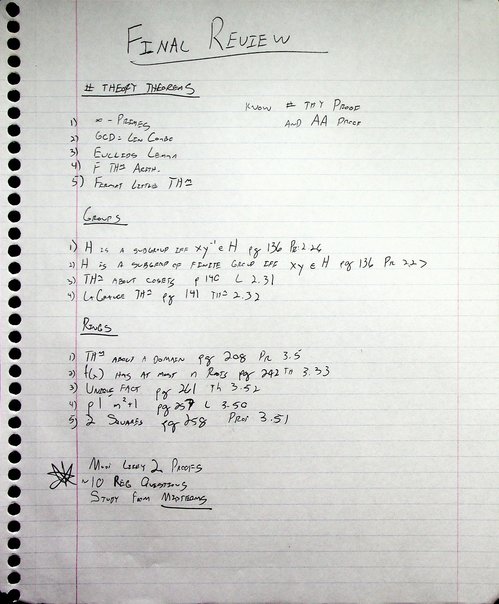 FINAL REVIEW
# THEORY THEOREMS
KNOW # THY PROOF
AND AA PROOF
1) ∞ - PRIMES
2) GCD = LIN COMBO
3) EUCLIDS LEMMA
4) F THM ARITH.
5) FERMAT LITTLE THM
GROUPS
1) H IS A SUBGROUP IFF xy⁻¹ ∈ H pg 136 PR 2.26
2) H IS A SUBGROUP OF FINITE GROUP IFF xy ∈ H pg 136 PR 2.27
3) THM ABOUT COSETS p 140 L 2.31
4) LAGRANGE THM pg 141 THM 2.32
RINGS
1) THM ABOUT A DOMAIN pg 208 PR 3.5
2) f(x) HAS AT MOST n ROOTS pg 242 TH 3.33
3) UNIQUE FACT pg 261 Th 3.52
4) p | m²+1 pg 257 L 3.50
5) 2 SQUARES pg 258 PROP 3.51
MOST LIKELY 2 PROOFS
~10 REG QUESTIONS
STUDY FROM MIDTERMS